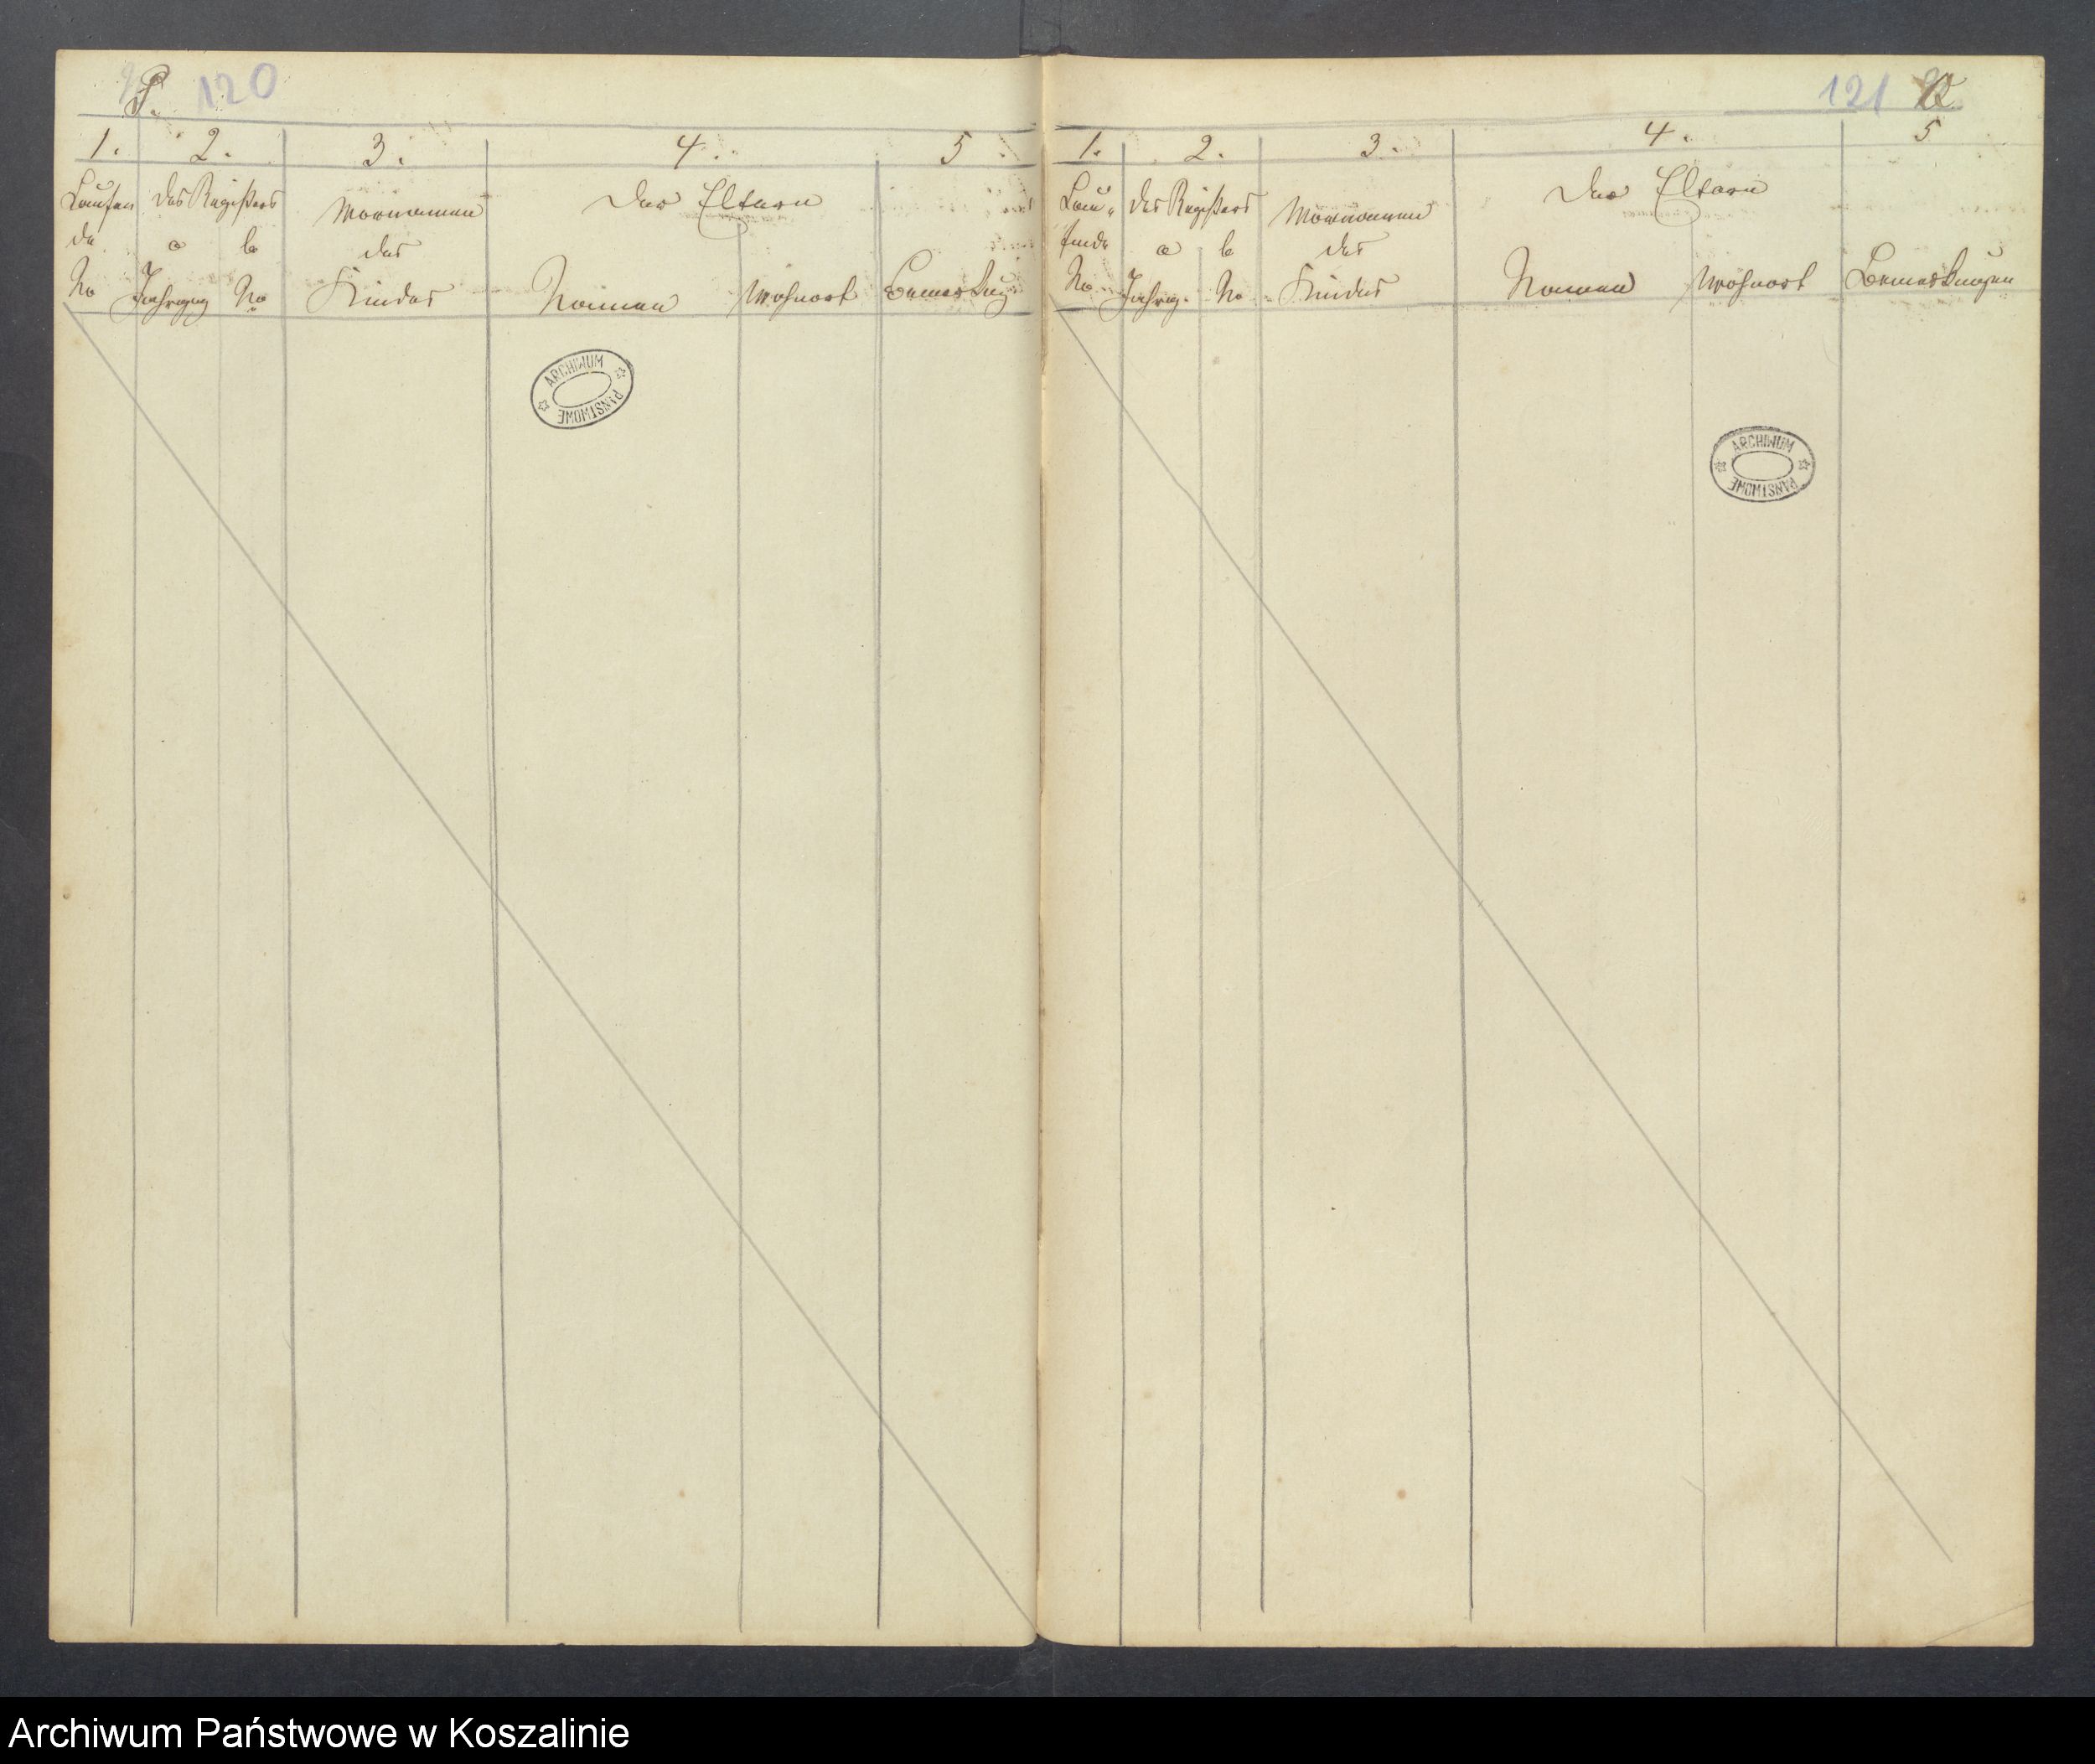 P. 120
1. 2. 3. 4. 5
Laufen des Registers Vornamen Der Eltern
de a b des
No Jahrgang No Kindes Namen Wohnort Bemerkung
ARCHIWUM PAŃSTWOWE
121
1. 2. 3. 4. 5
Lau- des Registers Vornamen Der Eltern
fende a b des
No Jahrg. No Kindes Namen Wohnort Bemerkungen
ARCHIWUM PAŃSTWOWE
Archiwum Państwowe w Koszalinie